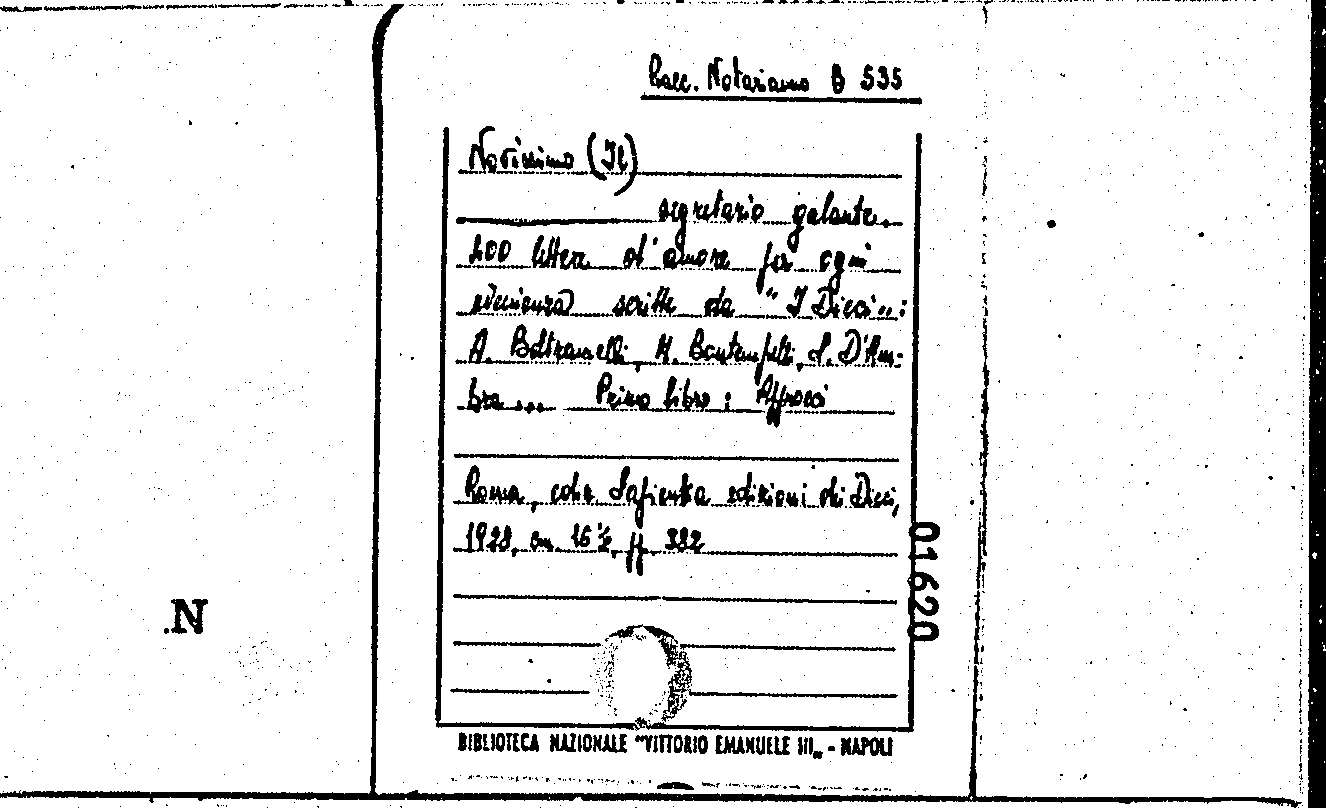 Racc. Notariamo B 535
Novissimo (Il)
segretario galante.
400 lettere d'amore per ogni
evenienza scritte da "I Dieci":
A. Beltramelli, M. Bontempelli, L. D'Am-
bra... Primo libro: Approcci
Roma, coi Sapientia edizioni dei Dieci,
1928, cm. 16 ½, pp. 382
01620
.N
BIBLIOTECA NAZIONALE "VITTORIO EMANUELE III" - NAPOLI